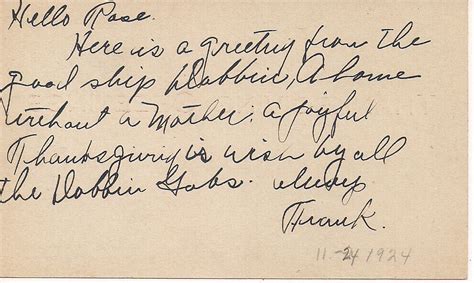 Hello Rose.
Here is a greeting from the
good ship Dobbin, A home
without a Mother, a joyful
Thanksgiving is wish by all
the Dobbin Gobs. always
Frank.
11-24 1924